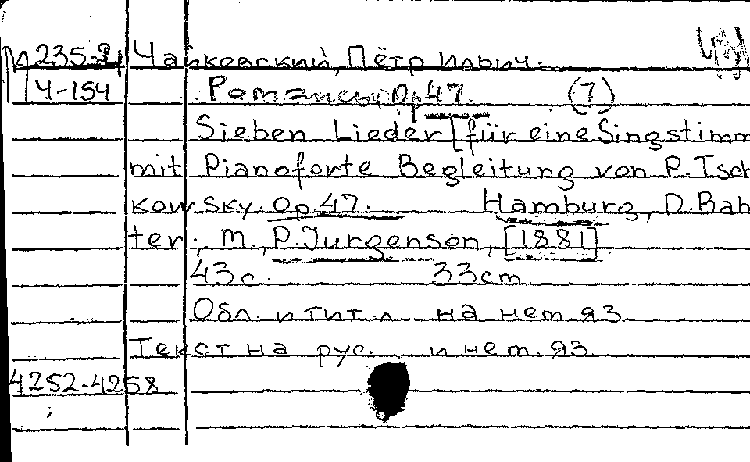 М 235-2 Чайковский, Пётр Ильич.
Ч-154 Романсы, Op 47. (7)
Sieben Lieder [für eine Singstimm
mit Pianoforte Begleitung von P. Tsch
kowsky. Op 47. Hamburg, D. Rah
ter; М., P. Jurgenson, [1881]
43 с. 33 cm
Обл. и тит. л на нем яз
Текст на рус. и нем. яз.
4252-4258